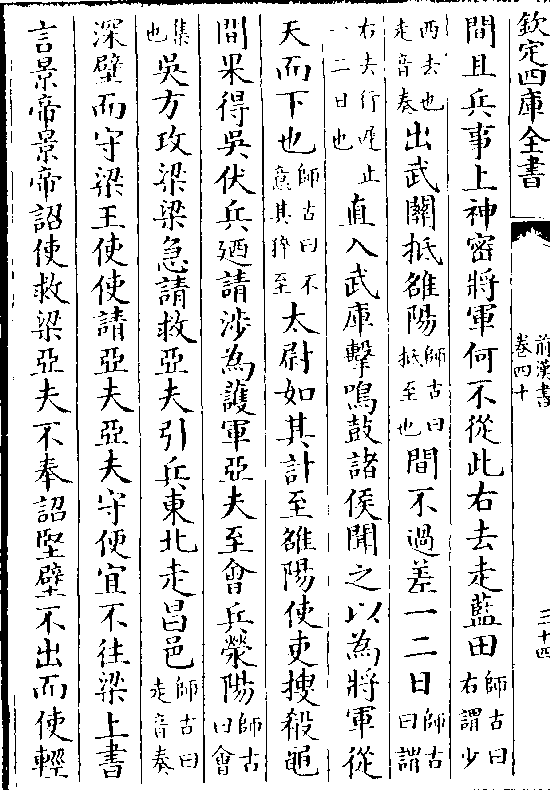 欽定四庫全書
前漢書
卷四十
三十四
間且兵事上神密將軍何不從此右去走藍田師古曰右謂少
西去也走音奏出武關抵雒陽師古曰抵至也間不過差一二日師古曰謂
右去行遲止一二日也直入武庫擊鳴鼓諸侯聞之以為將軍從
天而下也師古曰不意其猝至太尉如其計至雒陽使吏搜殽黽
間果得吳伏兵廼請涉為護軍亞夫至會兵滎陽師古曰會
集也吳方攻梁梁急請救亞夫引兵東北走昌邑師古曰走音奏
深壁而守梁王使使請亞夫亞夫守便宜不往梁上書
言景帝景帝詔使救梁亞夫不奉詔堅壁不出而使輕